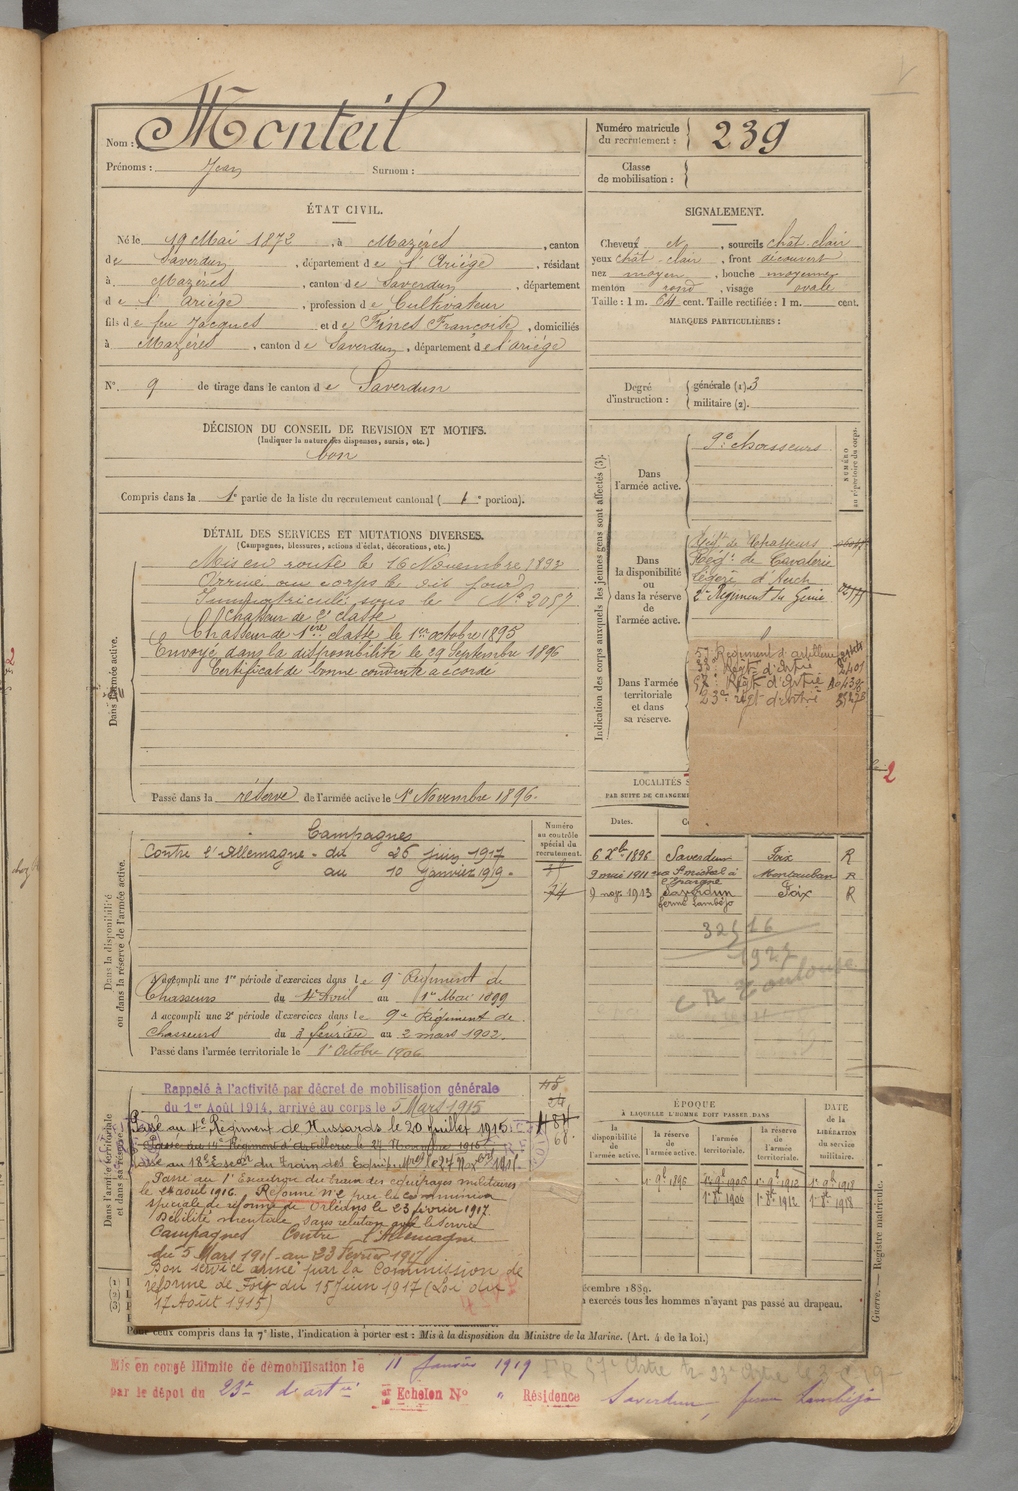 Nom : Monteil
Prénoms : Jean Surnom :
Numéro matricule du recrutement : 239
Classe de mobilisation :
ÉTAT CIVIL.
Né le 19 Mai 1872, à Mazères, canton
de Saverdun, département de l'Ariège, résidant
à Mazères, canton de Saverdun, département
de l'Ariège, profession de Cultivateur
fils de feu Jacques et de Fines Françoise, domiciliés
à Mazères, canton de Saverdun, département de l'ariège
N° 9 de tirage dans le canton de Saverdun
SIGNALEMENT.
Cheveux et, sourcils chât. clair
yeux chât. clair, front découvert
nez moyen, bouche moyenne
menton rond, visage ovale
Taille : 1 m. 64 cent. Taille rectifiée : 1 m. cent.
MARQUES PARTICULIÈRES :
Degré d'instruction : générale (1). 3
militaire (2).
DÉCISION DU CONSEIL DE REVISION ET MOTIFS.
(Indiquer la nature des dispenses, sursis, etc.)
bon
Compris dans la 1e partie de la liste du recrutement cantonal ( 1e portion).
DÉTAIL DES SERVICES ET MUTATIONS DIVERSES.
(Campagnes, blessures, actions d'éclat, décorations, etc.)
Dans l'armée active.
Mis en route le 16 Novembre 1893
Arrivé au corps le dit jour
Immatriculé sous le N° 2087
Chasseur de 2e classe
Chasseur de 1ère classe le 1er octobre 1895
Envoyé dans la disponibilité le 29 Septembre 1896
Certificat de bonne conduite accordé
Passé dans la réserve de l'armée active le 1er Novembre 1896.
Indication des corps auxquels les jeunes gens sont affectés (3).
NUMÉRO au répertoire du corps.
Dans l'armée active.
9e Chasseurs
Dans la disponibilité ou dans la réserve de l'armée active.
Régt de Chasseurs
Régt de Cavalerie
légère d'Auch
2e Régiment du Génie
Dans l'armée territoriale et dans sa réserve.
57e Régiment d'artillerie
Régt d'Artie 2401
57e Régt d'Artie
23e régt d'artie
LOCALITÉS S
PAR SUITE DE CHANGEM
Dates.
6 Xbre 1896 Saverdun Foix R
9 mai 1911 Montauban R
9 nov. 1913 Saverdun ferme Lambéjo Foix R
1927
CR Toulouse
Dans la disponibilité ou dans la réserve de l'armée active.
Numéro au contrôle spécial du recrutement.
74
Campagnes
Contre l'Allemagne - du 26 juin 1917
au 10 Janvier 1919.
A accompli une 1re période d'exercices dans le 9e Régiment de
Chasseurs du 4 Avril au 1er Mai 1899
A accompli une 2e période d'exercices dans le 9e Régiment de
Chasseurs du 3 février au 2 mars 1902.
Passé dans l'armée territoriale le 1er Octobre 1906
Dans l'armée territoriale et dans sa réserve.
Rappelé à l'activité par décret de mobilisation générale
du 1er Août 1914, arrivé au corps le 5 Mars 1915
Passé au 4e Régiment de Hussards le 20 juillet 1915
Passé au Régiment d'Artillerie le 27 Novembre 1915
Passé au 18e Escon du Train des Equip. le 27 1915
Passé au 1er Escadron du train des équipages militaires
le 24 août 1916. Réformé n° 2 par la commission
spéciale de réforme de Orléans le 23 février 1917.
Débilité mentale, sans relation avec le service
Campagnes Contre l'Allemagne
du 5 Mars 1915 au 23 Février 1917
Bon service armé par la Commission de
réforme de Foix du 15 Juin 1917 (Loi du
17 Août 1915)
ÉPOQUE
À LAQUELLE L'HOMME DOIT PASSER DANS
DATE DE LA LIBÉRATION du service militaire.
la disponibilité de l'armée active.
la réserve de l'armée active.
l'armée territoriale.
la réserve de l'armée territoriale.
1er 9bre 1896 1er 9bre 1906 1er 9bre 1912 1er 9bre 1918
1er 8bre 1906 1er 8bre 1912 1er 8bre 1918
écembre 1889.
exercés tous les hommes n'ayant pas passé au drapeau.
Pour ceux compris dans la 7e liste, l'indication à porter est : Mis à la disposition du Ministre de la Marine. (Art. 4 de la loi.)
Guerre. — Registre matricule. 1
Mis en congé illimité de démobilisation le 11 Janvier 1919
par le dépôt du 23e d'artie Echelon N° " Résidence Saverdun, ferme Lambéjo